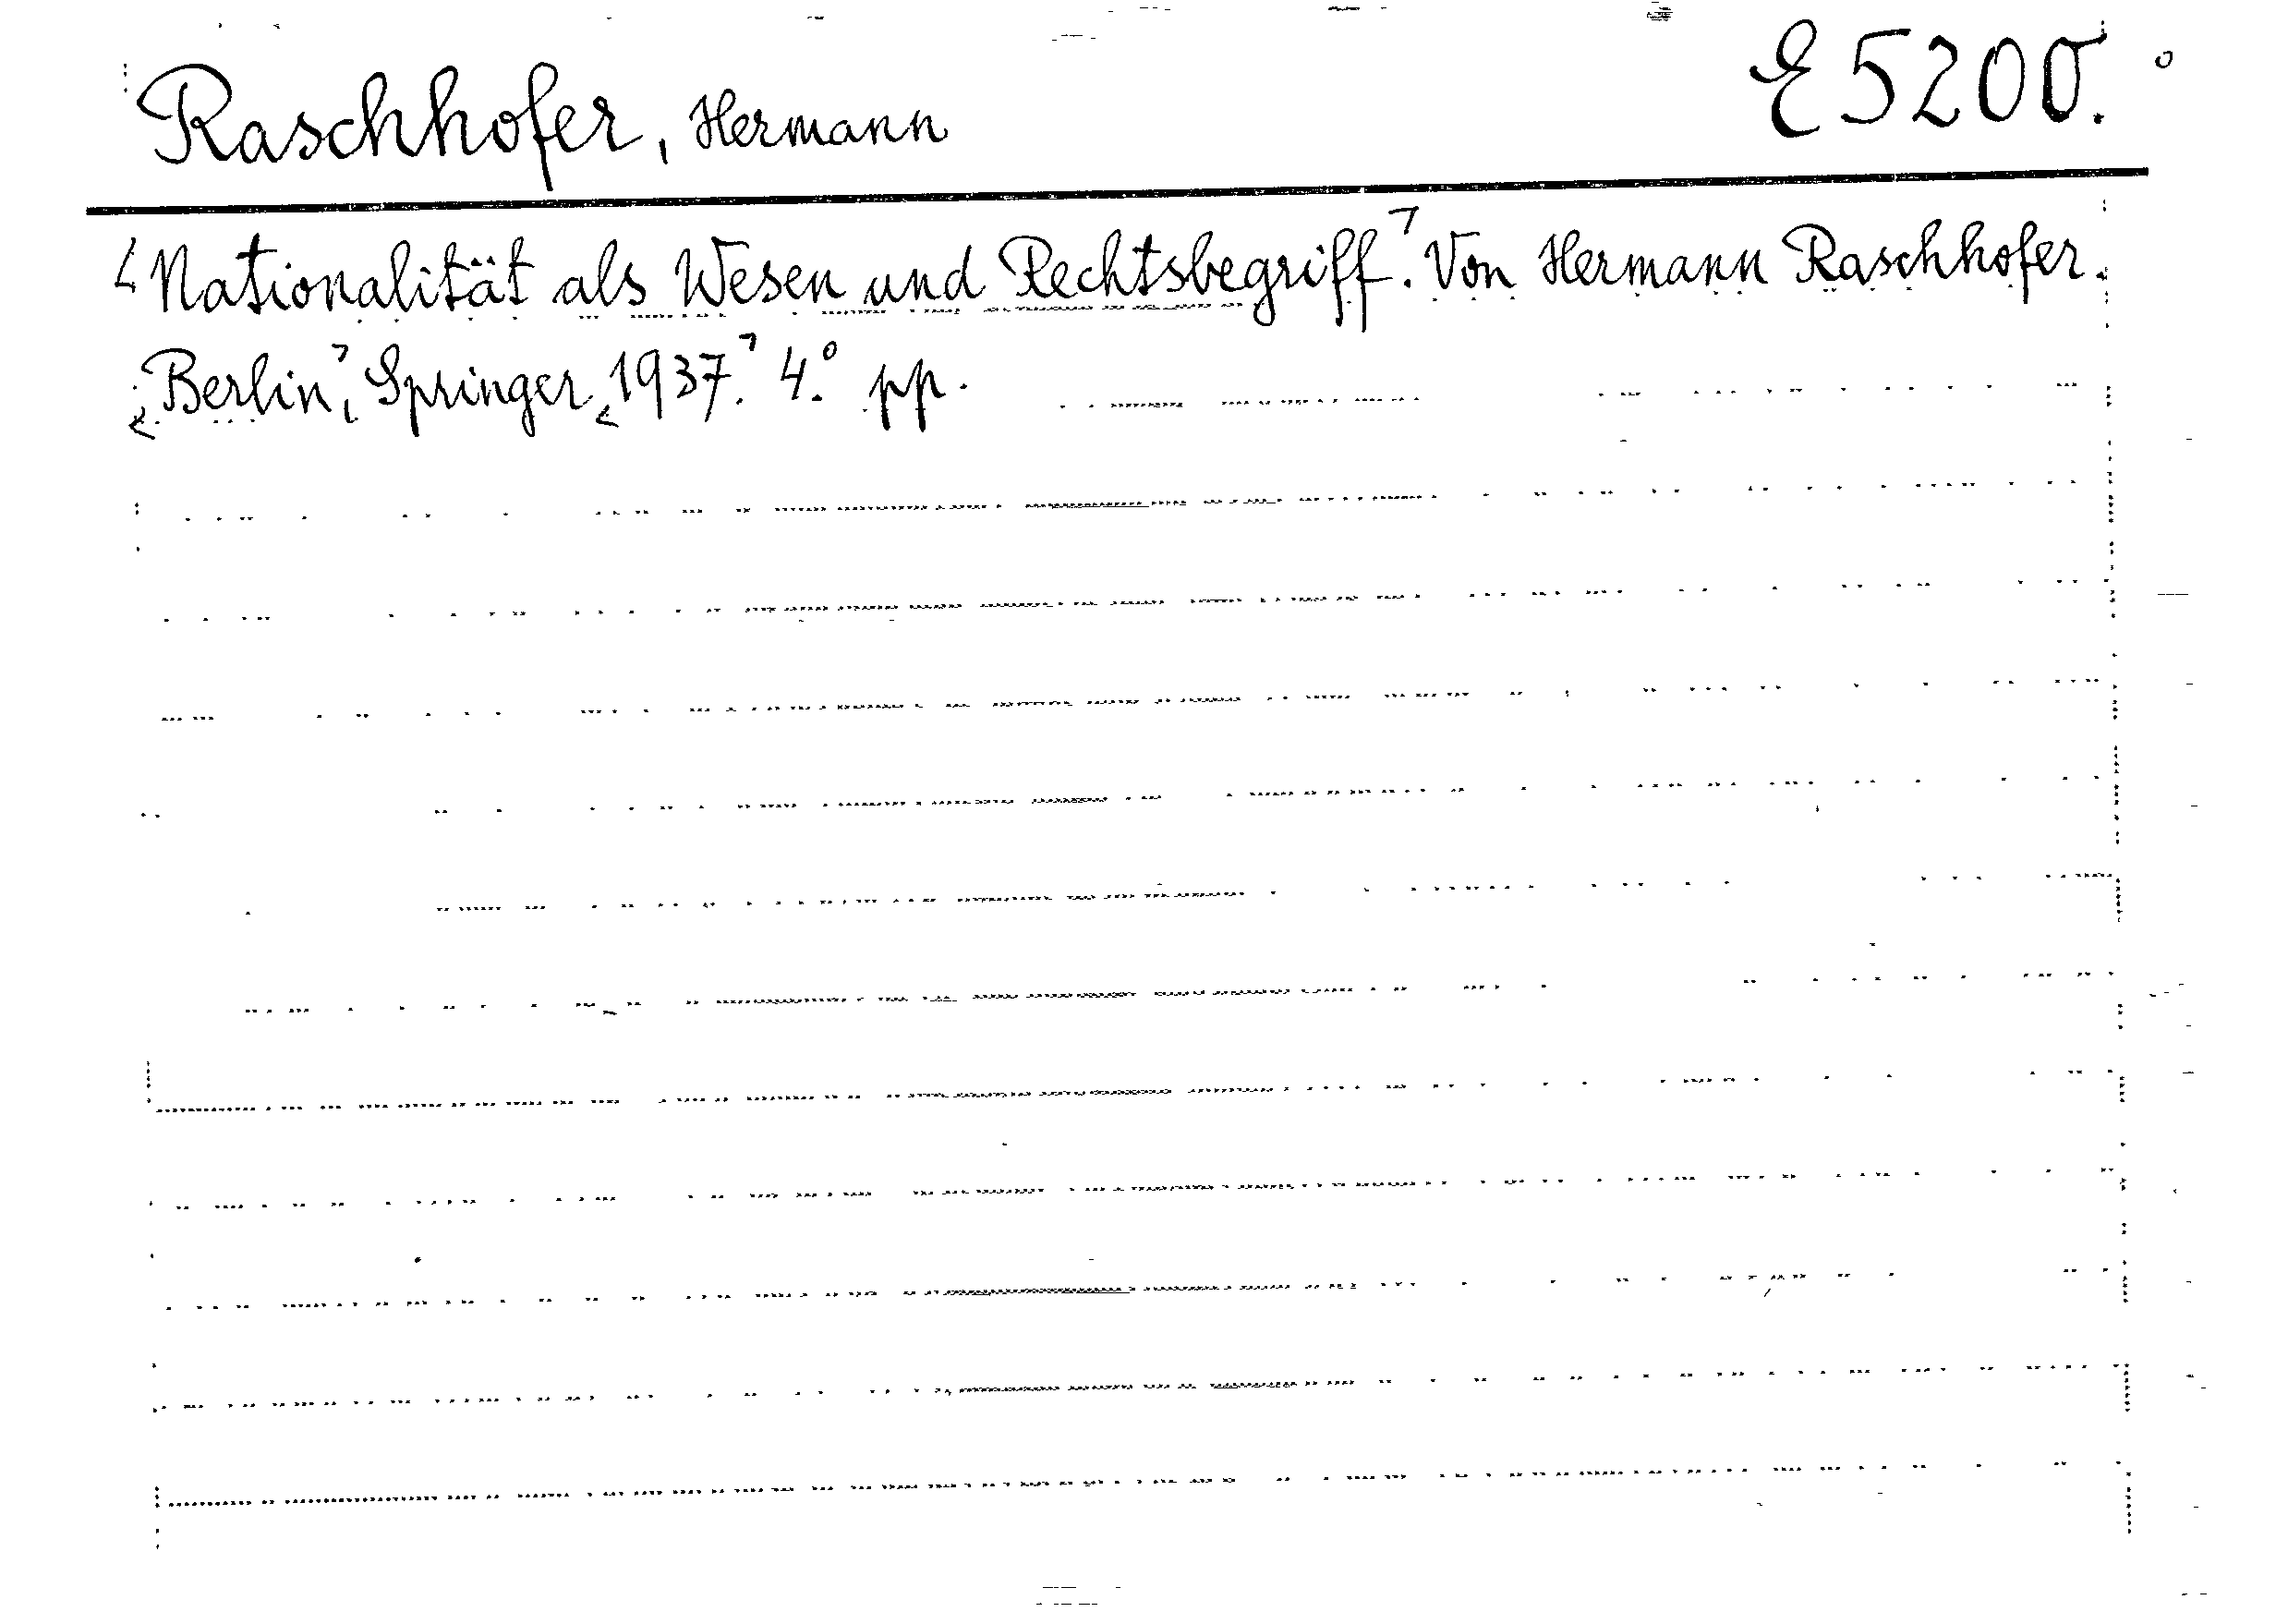 Raschhofer, Hermann E 5200.
<Nationalität als Wesen und Rechtsbegriff.> Von Hermann Raschhofer.
<Berlin>, Springer <1937.> 4.° pp.